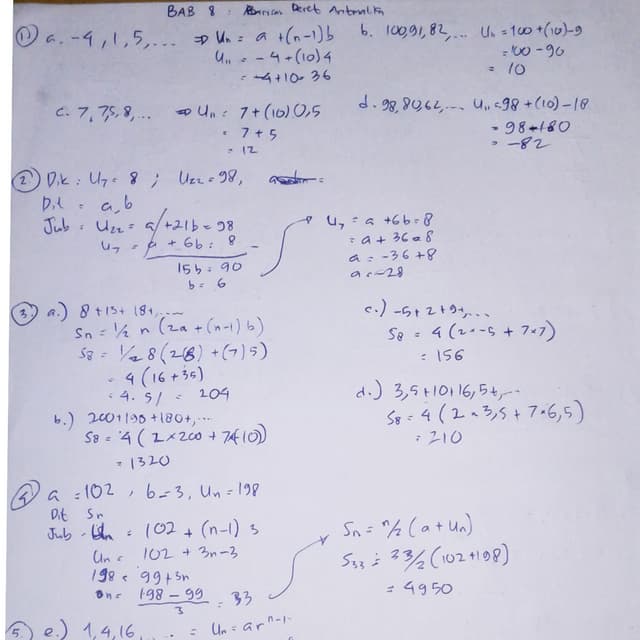 BAB 8 : Barisan Deret Aritmatika
1) a. -4, 1, 5, ... ⇒ Un = a + (n-1) b
U11 = -4 + (10) 4
= -4 + 10 = 36
b. 100, 91, 82, ... U11 = 100 + (10) -9
= 100 - 90
= 10
c. 7, 7,5, 8, ... ⇒ U11 = 7 + (10) 0,5
= 7 + 5
= 12
d. 98, 80, 62, ... U11 = 98 + (10) - 18
= 98 - 180
= -82
2) Dik : U7 = 8 ; U22 = 98,
Dit = a, b
Jwb = U22 = a + 21b = 98
U7 = a + 6b = 8 -
15b = 90
b = 6
U7 = a + 6b = 8
= a + 36 = 8
a = -36 + 8
a = -28
3. a.) 8 + 13 + 18 + ...
Sn = 1/2 n (2a + (n-1) b)
S8 = 1/2 8 (2(8) + (7) 5)
= 4 (16 + 35)
= 4 . 51 = 204
b.) 200 + 190 + 180 + ...
S8 = 4 (2 × 200 + 7(-10))
= 1320
c.) -5 + 2 + 9 + ...
S8 = 4 (2 × -5 + 7 × 7)
= 156
d.) 3,5 + 10 + 16,5 + ...
S8 = 4 (2 × 3,5 + 7 × 6,5)
= 210
4) a = 102, b = 3, Un = 198
Dit Sn
Jwb - Un = 102 + (n-1) 3
Un = 102 + 3n - 3
198 = 99 + 3n
n = 198 - 99 / 3 = 33
Sn = n/2 (a + Un)
S33 = 33/2 (102 + 198)
= 4950
5. e.) 1, 4, 16, ... = Un = ar^n-1